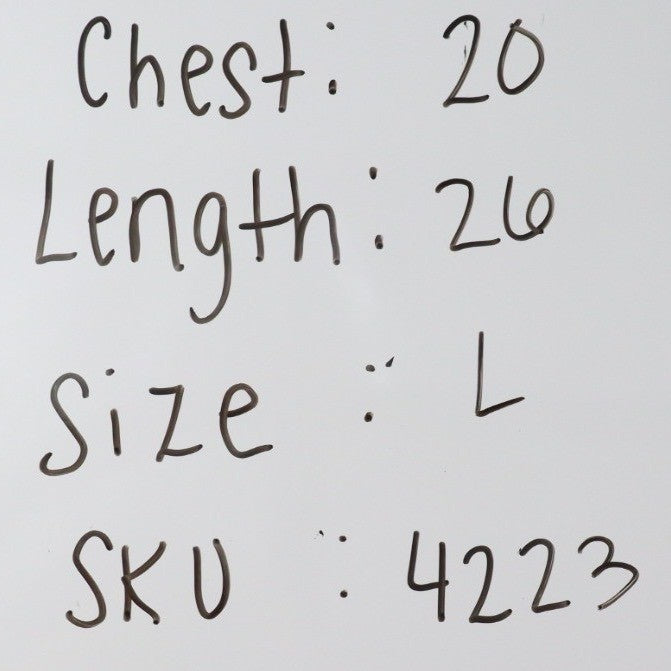 Chest: 20
Length: 26
Size : L
SKU : 4223